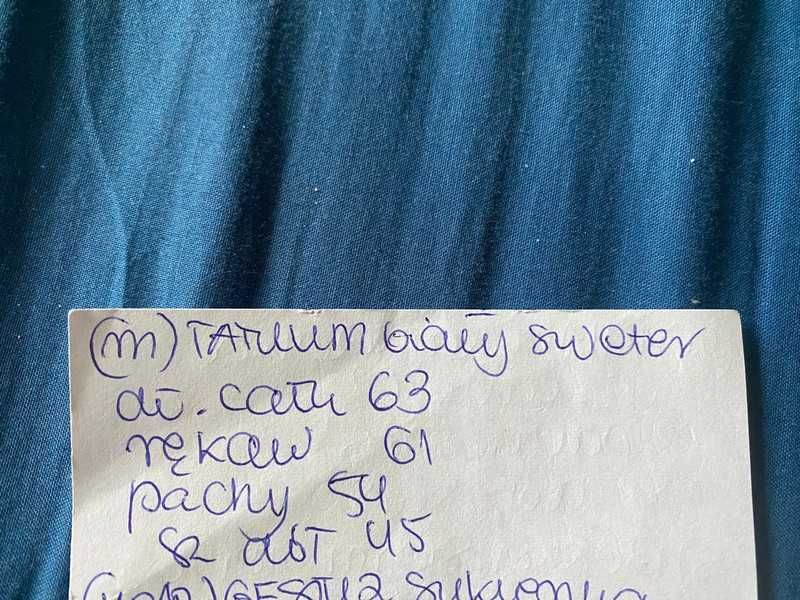 (m) TATUUM biały sweter
dł. całk 63
rękaw 61
pachy 54
sz dół 45
GESTUZ